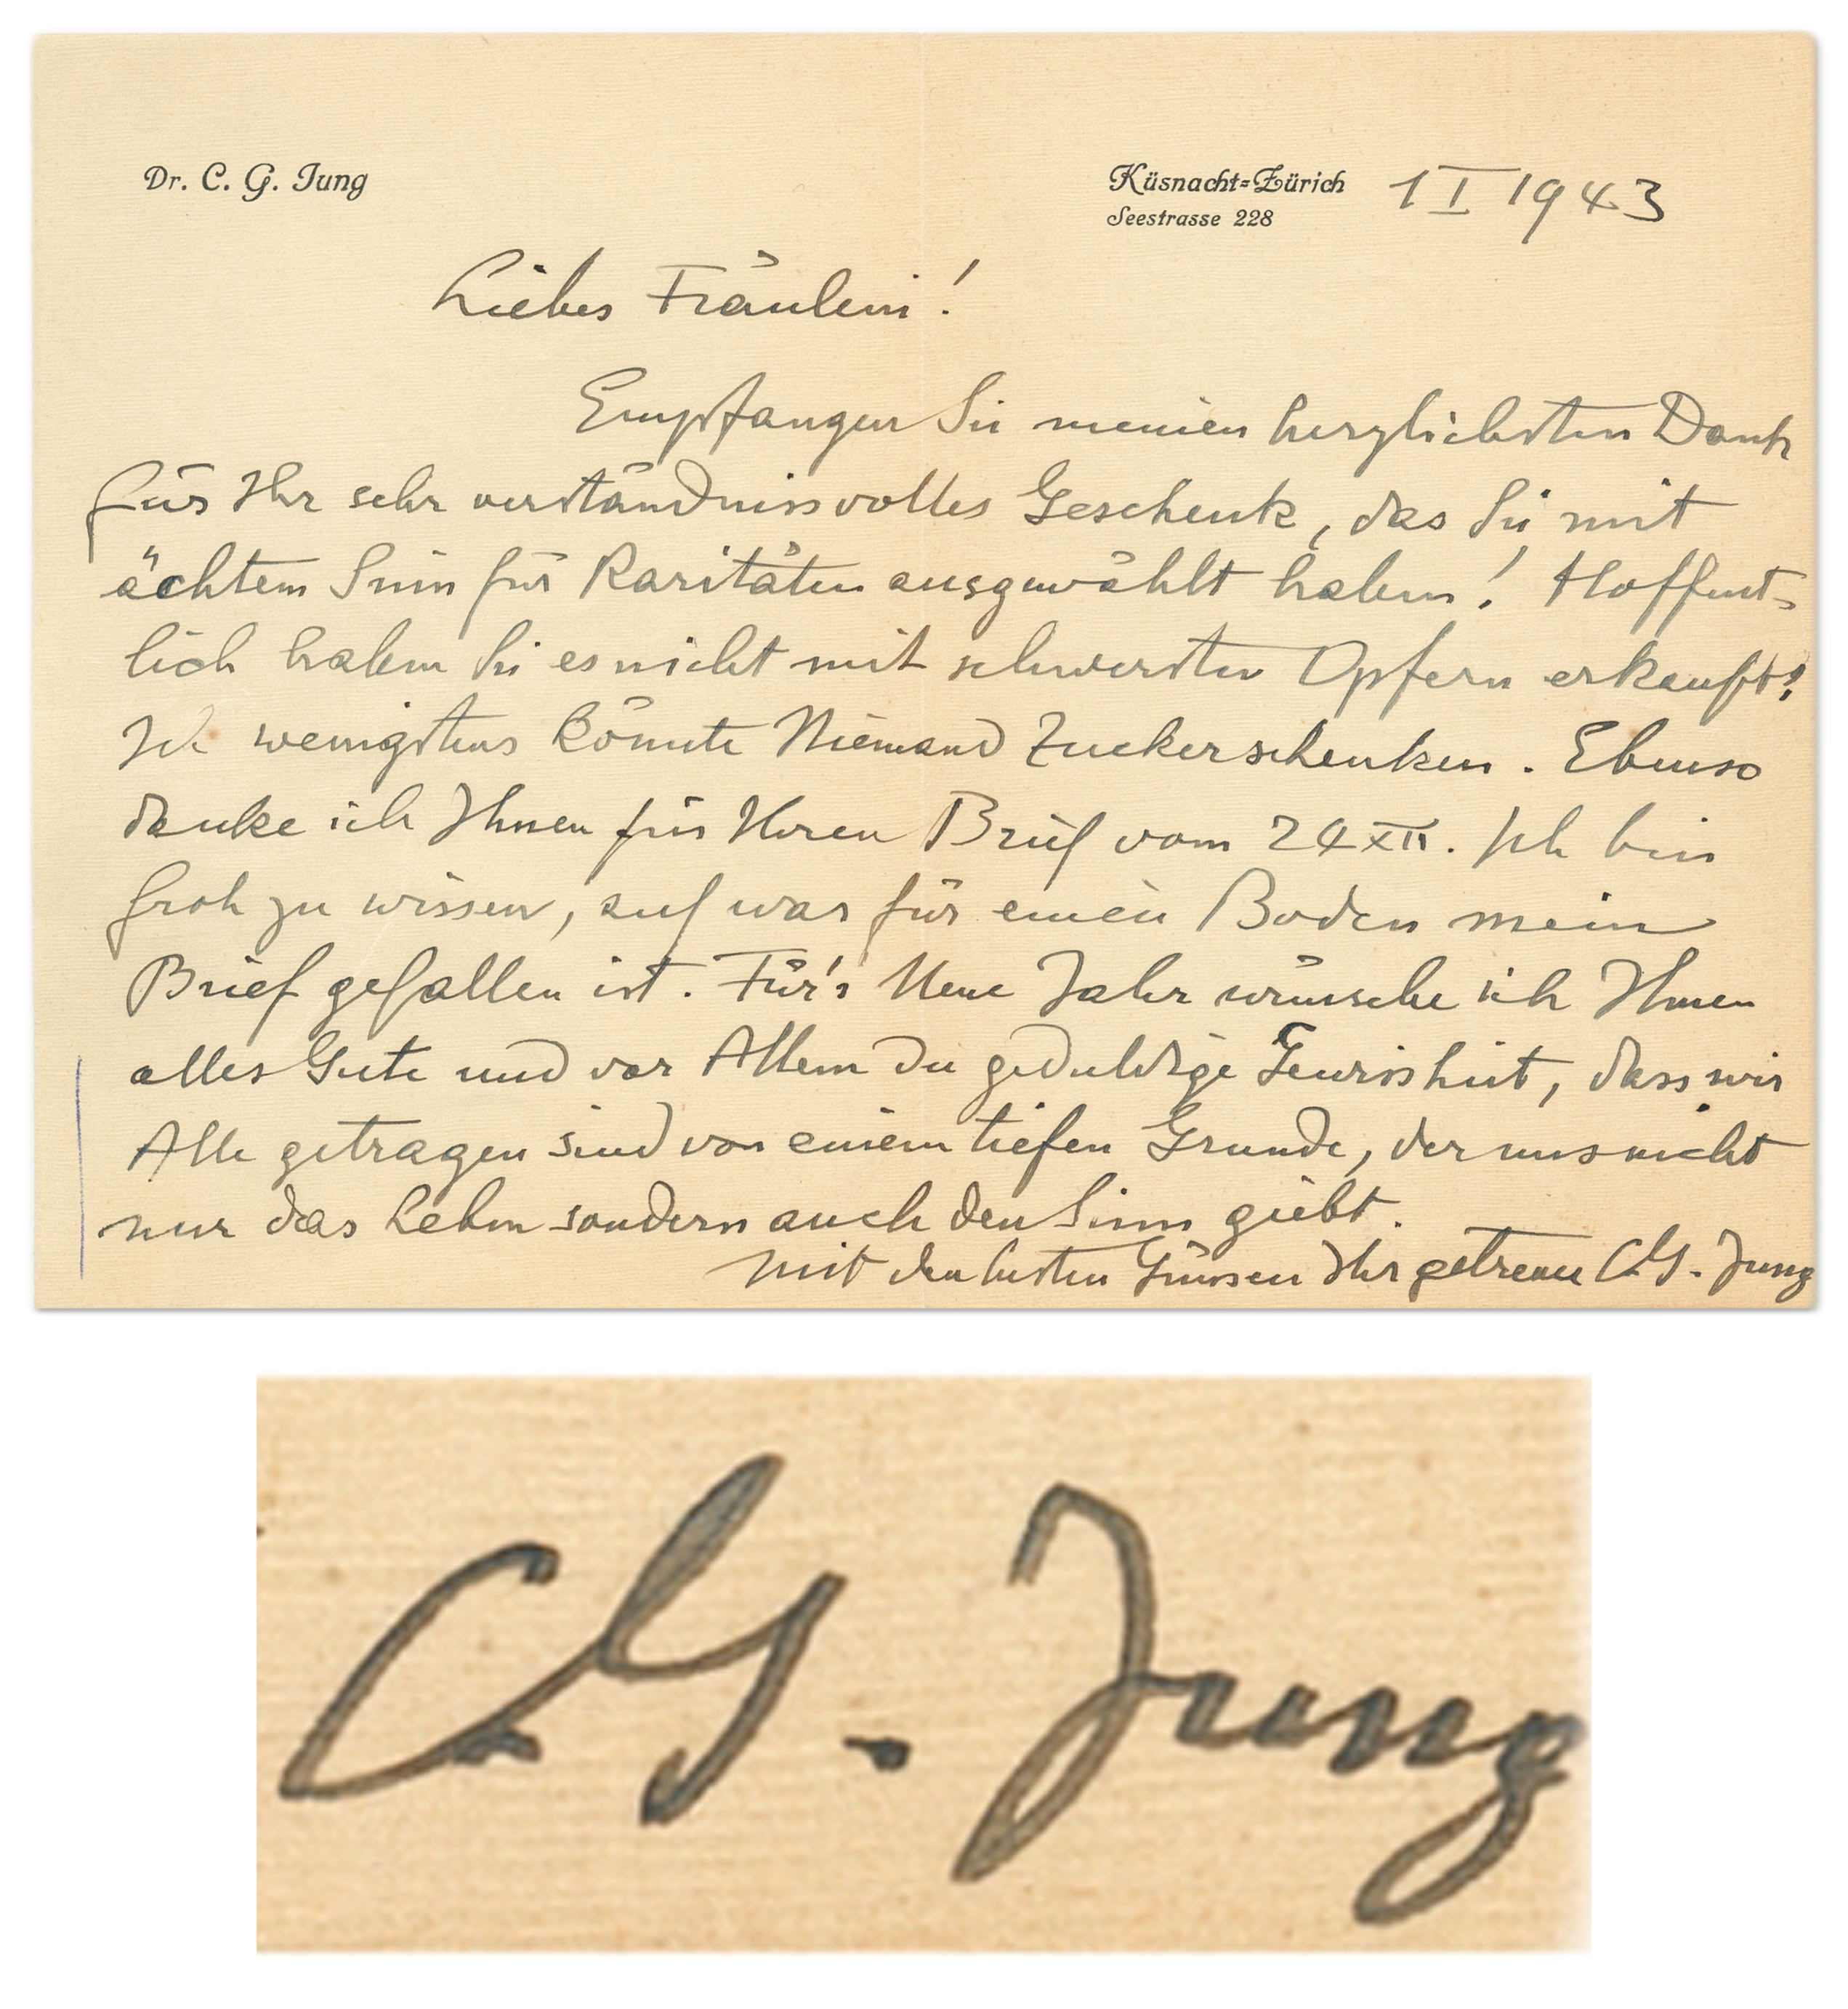 Dr. C. G. Jung
Küsnacht-Zürich 1 I 1943
Seestrasse 228
Liebes Fräulein!
Empfangen Sie meinen herzlichsten Dank
für Ihr sehr verständnissvolles Geschenk, das Sie mit
ächtem Sinn für Raritäten ausgewählt haben! Hoffent-
lich haben Sie es nicht mit schwersten Opfern erkauft!
wenigstens könnte Niemand Zucker schenken. Ebenso
danke ich Ihnen für Ihren Brief vom 24 XII. Ich bin
froh zu wissen, auf was für einen Boden mein
Brief gefallen ist. Für's Neue Jahr wünsche ich Ihnen
alles Gute und vor Allem die geduldige Gewissheit, dass wir
Alle getragen sind von einem tiefen Grunde, der uns nicht
nur das Leben sondern auch den Sinn giebt.
Mit den besten Grüssen Ihr getreuer C.G. Jung
C.G. Jung